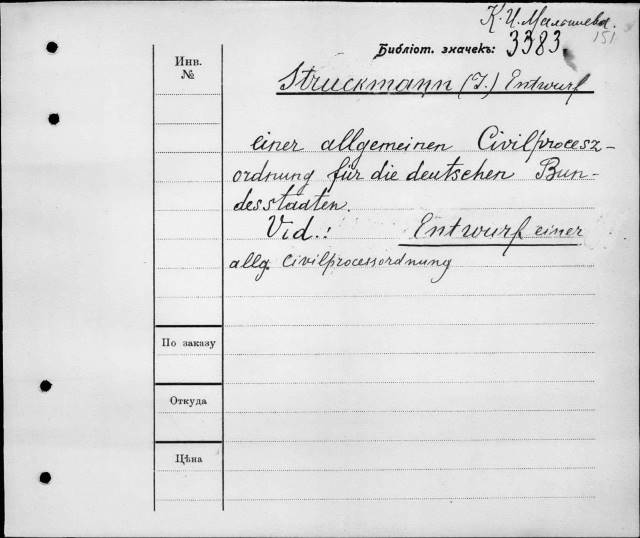 К. И. Малышева.
151
Библіот. значекъ: 3383.
Инв.
№
Struckmann (J.) Entwurf
einer allgemeinen Civilprocesz-
ordnung für die deutschen Bun-
desstaaten.
Vid.: Entwurf einer
allg. Civilprocessordnung
По заказу
Откуда
Цѣна